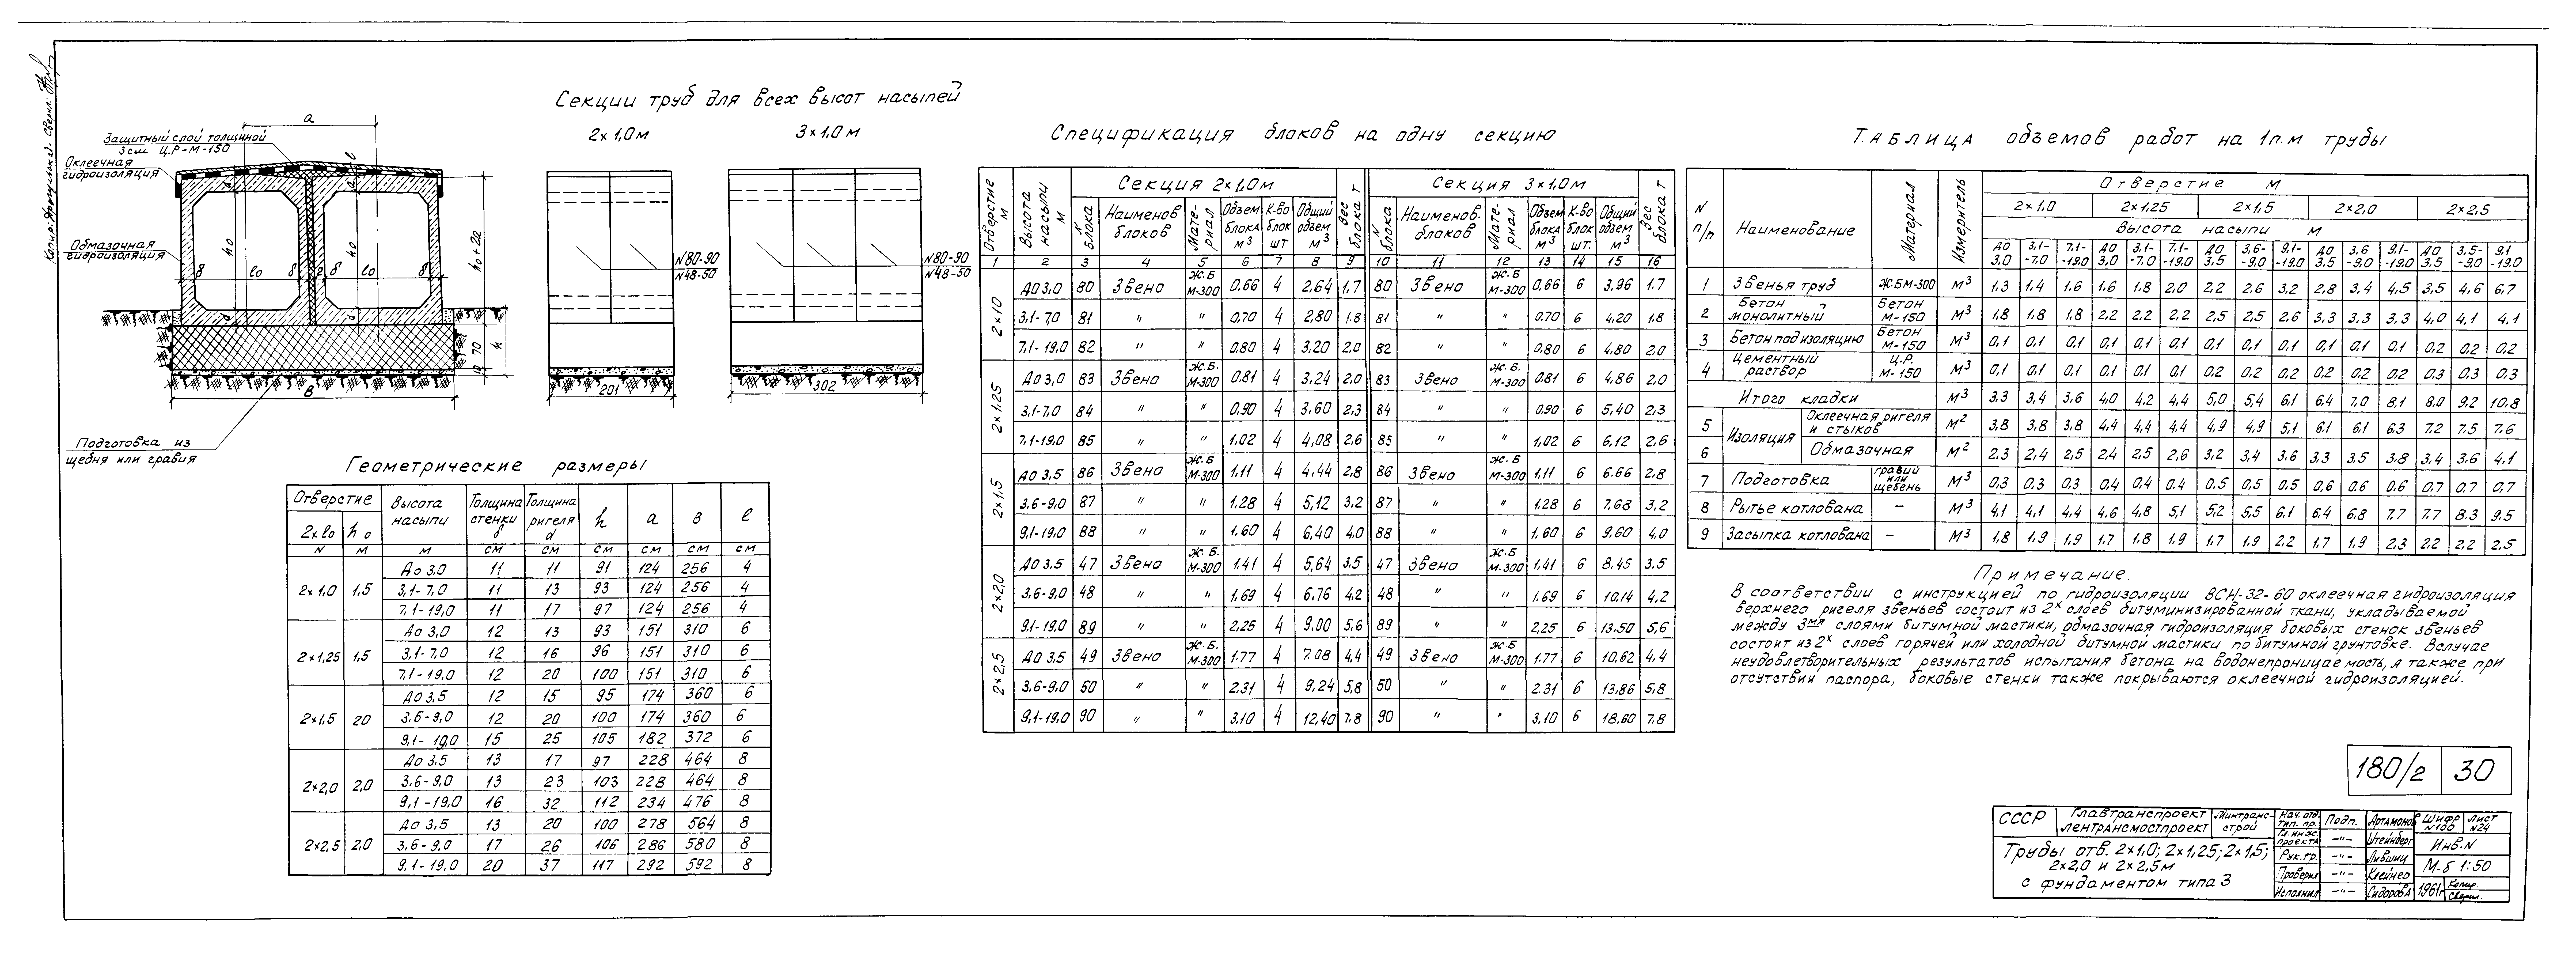 Секции труб для всех высот насыпей
2×1,0м
3×1,0м
a
Защитный слой толщиной
3см Ц.Р-М-150
Оклеечная
гидроизоляция
Обмазочная
гидроизоляция
h₀
h₀
δ l₀ δ δ l₀ δ
h₀+2d
10 70 h
В
Подготовка из
щебня или гравия
N80-90
N48-50
201
N80-90
N48-50
302
Геометрические размеры
Отверстие | Высота насыпи | Толщина стенки δ | Толщина ригеля d | h | a | в | l
2×l₀ | h₀
N | м | м | см | см | см | см | см | см
2×1,0 | 1,5 | До 3,0 | 11 | 11 | 91 | 124 | 256 | 4
3,1-7,0 | 11 | 13 | 93 | 124 | 256 | 4
7,1-19,0 | 11 | 17 | 97 | 124 | 256 | 4
2×1,25 | 1,5 | До 3,0 | 12 | 13 | 93 | 151 | 310 | 6
3,1-7,0 | 12 | 16 | 96 | 151 | 310 | 6
7,1-19,0 | 12 | 20 | 100 | 151 | 310 | 6
2×1,5 | 20 | До 3,5 | 12 | 15 | 95 | 174 | 360 | 6
3,6-9,0 | 12 | 20 | 100 | 174 | 360 | 6
9,1-19,0 | 15 | 25 | 105 | 182 | 372 | 6
2×2,0 | 2,0 | До 3,5 | 13 | 17 | 97 | 228 | 464 | 8
3,6-9,0 | 13 | 23 | 103 | 228 | 464 | 8
9,1-19,0 | 16 | 32 | 112 | 234 | 476 | 8
2×2,5 | 2,0 | До 3,5 | 13 | 20 | 100 | 278 | 564 | 8
3,6-9,0 | 17 | 26 | 106 | 286 | 580 | 8
9,1-19,0 | 20 | 37 | 117 | 292 | 592 | 8
Спецификация блоков на одну секцию
Отверстие м | Высота насыпи м | Секция 2×1,0м | Вес блока т | Секция 3×1,0м | Вес блока т
N блока | Наименов блоков | Мате-риал | Объем блока м³ | К-во блок шт | Общий объем м³ | N блока | Наименов. блоков | Мате-риал | Объем блока м³ | К-во блок шт. | Общий объем м³
1 | 2 | 3 | 4 | 5 | 6 | 7 | 8 | 9 | 10 | 11 | 12 | 13 | 14 | 15 | 16
2×1,0 | До 3,0 | 80 | Звено | Ж.Б М-300 | 0,66 | 4 | 2,64 | 1,7 | 80 | Звено | Ж.Б М-300 | 0,66 | 6 | 3,96 | 1,7
3,1-7,0 | 81 | " | " | 0,70 | 4 | 2,80 | 1,8 | 81 | " | " | 0,70 | 6 | 4,20 | 1,8
7,1-19,0 | 82 | " | " | 0,80 | 4 | 3,20 | 2,0 | 82 | " | " | 0,80 | 6 | 4,80 | 2,0
2×1,25 | До 3,0 | 83 | Звено | Ж.Б. М-300 | 0,81 | 4 | 3,24 | 2,0 | 83 | Звено | Ж.Б. М-300 | 0,81 | 6 | 4,86 | 2,0
3,1-7,0 | 84 | " | " | 0,90 | 4 | 3,60 | 2,3 | 84 | " | " | 0,90 | 6 | 5,40 | 2,3
7,1-19,0 | 85 | " | " | 1,02 | 4 | 4,08 | 2,6 | 85 | " | " | 1,02 | 6 | 6,12 | 2,6
2×1,5 | До 3,5 | 86 | Звено | Ж.Б М-300 | 1,11 | 4 | 4,44 | 2,8 | 86 | Звено | Ж.Б М-300 | 1,11 | 6 | 6.66 | 2,8
3,6-9,0 | 87 | " | " | 1,28 | 4 | 5,12 | 3,2 | 87 | " | " | 1,28 | 6 | 7,68 | 3,2
9,1-19,0 | 88 | " | " | 1,60 | 4 | 6,40 | 4,0 | 88 | " | " | 1,60 | 6 | 9,60 | 4,0
2×2,0 | До 3,5 | 47 | Звено | Ж.Б. М-300 | 1,41 | 4 | 5,64 | 3,5 | 47 | Звено | Ж.Б М-300 | 1,41 | 6 | 8,45 | 3,5
3,6-9,0 | 48 | " | 1,69 | 4 | 6,76 | 4,2 | 48 | " | " | 1,69 | 6 | 10,14 | 4,2
9,1-19,0 | 89 | " | " | 2,25 | 4 | 9,00 | 5,6 | 89 | " | " | 2,25 | 6 | 13,50 | 5,6
2×2,5 | До 3,5 | 49 | Звено | Ж.Б. М-300 | 1,77 | 4 | 7,08 | 4,4 | 49 | Звено | Ж.Б М-300 | 1.77 | 6 | 10,62 | 4,4
3,6-9,0 | 50 | " | " | 2,31 | 4 | 9,24 | 5,8 | 50 | " | " | 2.31 | 6 | 13,86 | 5,8
9,1-19,0 | 90 | " | " | 3,10 | 4 | 12,40 | 7,8 | 90 | " | " | 3,10 | 6 | 18,60 | 7,8
Таблица обземов работ на 1п.м трубы
N п/п | Наименование | Материал | Измеритель | Отверстие м
2×1,0 | 2×1,25 | 2×1,5 | 2×2,0 | 2×2,5
Высота насыпи м
До 3,0 | 3,1-7,0 | 7,1-19,0 | До 3,0 | 3,1-7,0 | 7,1-19,0 | До 3,5 | 3,6-9,0 | 9,1-19,0 | До 3,5 | 3,6-9,0 | 9,1-19,0 | До 3,5 | 3,5-9,0 | 9,1-19,0
1 | Звенья труб | Ж.БМ-300 | м³ | 1,3 | 1,4 | 1,6 | 1,6 | 1,8 | 2,0 | 2,2 | 2,6 | 3,2 | 2,8 | 3,4 | 4,5 | 3,5 | 4,6 | 6,7
2 | Бетон монолитный | Бетон М-150 | м³ | 1,8 | 1,8 | 1,8 | 2,2 | 2,2 | 2,2 | 2,5 | 2,5 | 2,6 | 3,3 | 3,3 | 3,3 | 4,0 | 4,1 | 4,1
3 | Бетон под изоляцию | Бетон М-150 | м³ | 0,1 | 0,1 | 0,1 | 0,1 | 0,1 | 0,1 | 0,1 | 0,1 | 0,1 | 0,1 | 0,1 | 0,1 | 0,2 | 0,2 | 0,2
4 | Цементный раствор | Ц.Р. М-150 | м³ | 0,1 | 0,1 | 0,1 | 0,1 | 0,1 | 0,1 | 0,2 | 0,2 | 0,2 | 0,2 | 0,2 | 0,2 | 0,3 | 0,3 | 0,3
Итого кладки | м³ | 3.3 | 3,4 | 3,6 | 4,0 | 4,2 | 4,4 | 5,0 | 5,4 | 6,1 | 6,4 | 7,0 | 8,1 | 8,0 | 9,2 | 10,8
5 | Изоляция | Оклеечная ригеля и стыков | м² | 3,8 | 3,8 | 3,8 | 4,4 | 4,4 | 4,4 | 4,9 | 4,9 | 5,1 | 6,1 | 6,1 | 6,3 | 7,2 | 7,5 | 7,6
6 | Обмазочная | м² | 2,3 | 2,4 | 2,5 | 2,4 | 2,5 | 2,6 | 3,2 | 3,4 | 3,6 | 3,3 | 3,5 | 3,8 | 3,4 | 3,6 | 4,1
7 | Подготовка | гравий или щебень | м³ | 0,3 | 0,3 | 0,3 | 0,4 | 0,4 | 0,4 | 0,5 | 0,5 | 0,5 | 0,6 | 0,6 | 0,6 | 0,7 | 0,7 | 0,7
8 | Рытье котлована | — | м³ | 4,1 | 4,1 | 4,4 | 4,6 | 4,8 | 5,1 | 5,2 | 5,5 | 6,1 | 6,4 | 6,8 | 7.7 | 7.7 | 8.3 | 9.5
9 | Засыпка котлована | — | м³ | 1,8 | 1,9 | 1,9 | 1,7 | 1,8 | 1,9 | 1,7 | 1,9 | 2,2 | 1,7 | 1,9 | 2,3 | 2,2 | 2,2 | 2,5
Примечание.
В соответствии с инструкцией по гидроизоляции ВСН-32-60 оклеечная гидроизоляция
верхнего ригеля звеньев состоит из 2х слоев битуминизированной ткани, укладываемой
между 3мя слоями битумной мастики, обмазочная гидроизоляция боковых стенок звеньев
состоит из 2х слоев горячей или холодной битумной мастики по битумной грунтовке. Вслучае
неудовлетворительных результатов испытания бетона на водонепроницаемость, а также при
отсутствии паспора, боковые стенки также покрываются оклеечной гидроизоляцией.
180/2 | 30
СССР | Главтранспроект Лентрансмостпроект | Минтранс-строй
Трубы отв. 2×1,0; 2×1,25; 2×1,5;
2×2,0 и 2×2,5м
с фундаментом типа 3
Нач. отд. тип. пр. | Подп. | Артамонов | Шифр N100 | Лист N24
Гл. инж. проекта | —"— | Штейнберг | Инв.N
Рук. гр. | —"— | Лившиц
Проверил | —"— | Клейнер | М-б 1:50
Исполнил | —"— | Сидорова | 1961г | Копир.
Сверил.